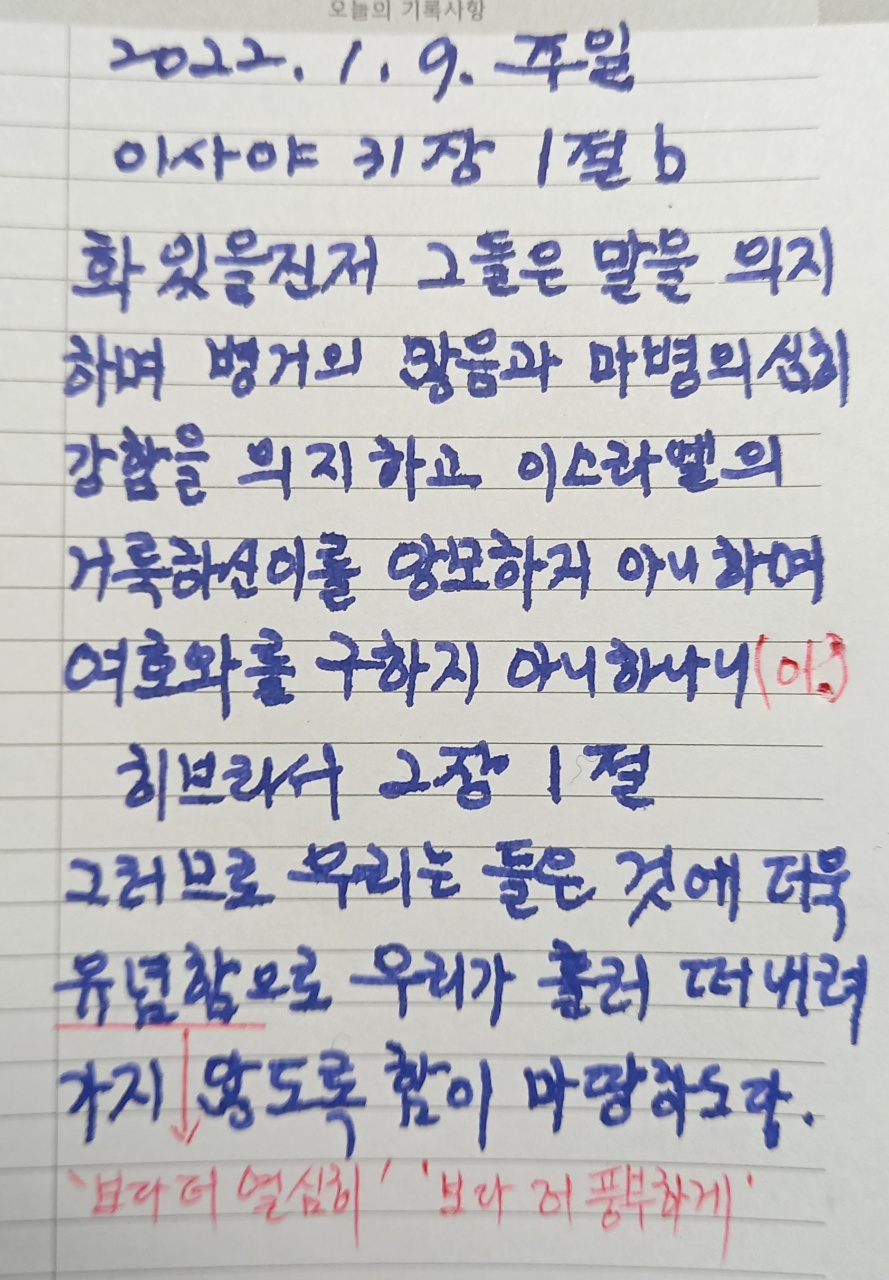 오늘의 기록사항
2022. 1. 9. 주일
이사야 31장 1절 b
화 있을진저 그들은 말을 의지
하며 병거의 많음과 마병의 심히
강함을 의지하고 이스라엘의
거룩하신이를 앙모하지 아니하며
여호와를 구하지 아니하나니
히브리서 2장 1절
그러므로 우리는 들은 것에 더욱
유념함으로 우리가 흘러 떠내려
가지 않도록 함이 마땅하도다.
'보다 더 열심히' '보다 더 풍부하게'